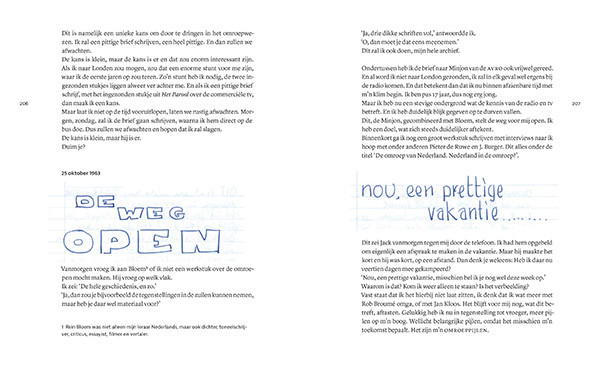 Dit is namelijk een unieke kans om door te dringen in het omroepwe-
zen. Ik zal een pittige brief schrijven, een heel pittige. En dan zullen we
afwachten.
De kans is klein, maar de kans is er en dat zou enorm interessant zijn.
Als ik naar Londen zou mogen, zou dat een enorme stunt voor me zijn,
waar ik de eerste jaren op zou teren. Zo'n stunt heb ik nodig, de twee in-
gezonden stukjes liggen alweer ver achter me. En als ik een pittige brief
schrijf, met het ingezonden stukje uit Het Parool over de commerciële tv,
dan maak ik een kans.
Maar laat ik niet op de tijd vooruitlopen, laten we rustig afwachten. Mor-
gen, zondag, zal ik de brief gaan schrijven, waarna ik hem direct op de
bus doe. Dus zullen we afwachten en hopen dat ik zal slagen.
De kans is klein, maar hij is er.
Duim je?
206
25 oktober 1963
DE WEG
OPEN
Vanmorgen vroeg ik aan Bloem¹ of ik niet een werkstuk over de omroe-
pen mocht maken. Hij vroeg op welk vlak.
Ik zei: 'De hele geschiedenis, en zo.'
'Ja, dan zou je bijvoorbeeld de tegenstellingen in de zuilen kunnen nemen,
maar heb je daar wel materiaal voor?'
1 Rein Bloem was niet alleen mijn leraar Nederlands, maar ook dichter, toneelschrij-
ver, criticus, essayist, filmer en vertaler.
'Ja, drie dikke schriften vol,' antwoordde ik.
'O, dan moet je dat eens meenemen.'
Dit zal ik ook doen, mijn hele archief.
Ondertussen heb ik de brief naar Minjon van de AVRO ook vrijwel gereed.
En al word ik niet naar Londen gezonden, ik zal in elk geval wel ergens bij
de radio komen. En dat betekent dan dat ik nu binnen afzienbare tijd met
m'n klim begin. Ik ben pus 17 jaar, dus nog erg jong.
Maar ik heb nu een stevige ondergrond wat de kennis van de radio en tv
betreft. En ik heb duidelijk blijk gegeven op te durven vallen.
Dit, de Minjon, gecombineerd met Bloem, stelt de weg voor mij open. Ik
heb een doel, wat zich steeds duidelijker aftekent.
Binnenkort ga ik nog een groot werkstuk schrijven met interviews naar ik
hoop met onder anderen Pieter de Ruwe en J. Burger. Dit alles onder de
titel 'De omroep van Nederland. Nederland in de omroep?'.
207
nou, een prettige
vakantie.........
Dit zei Jack vanmorgen tegen mij door de telefoon. Ik had hem opgebeld
om eigenlijk een afspraak te maken in de vakantie. Maar hij maakte het
kort en hij was kort, op een afstand. Dan denk je weleens: Heb ik daar nu
veertien dagen mee gekampeerd?
'Nou, een prettige vakantie, misschien bel ik je nog wel deze week op.'
Waarom is dat? Kom ik weer alleen te staan? Is het verbeelding?
Vast staat dat ik het hierbij niet laat zitten, ik denk dat ik wat meer met
Rob Broumé omga, of met Jan Kloos. Het blijft voor mij nog, wat dit be-
treft, aftasten. Gelukkig heb ik nu in tegenstelling tot vroeger, meer pij-
len op m'n boog. Wellicht belangrijke pijlen, omdat het misschien m'n
toekomst bepaalt. Het zijn m'n OMROEPPIJLEN.